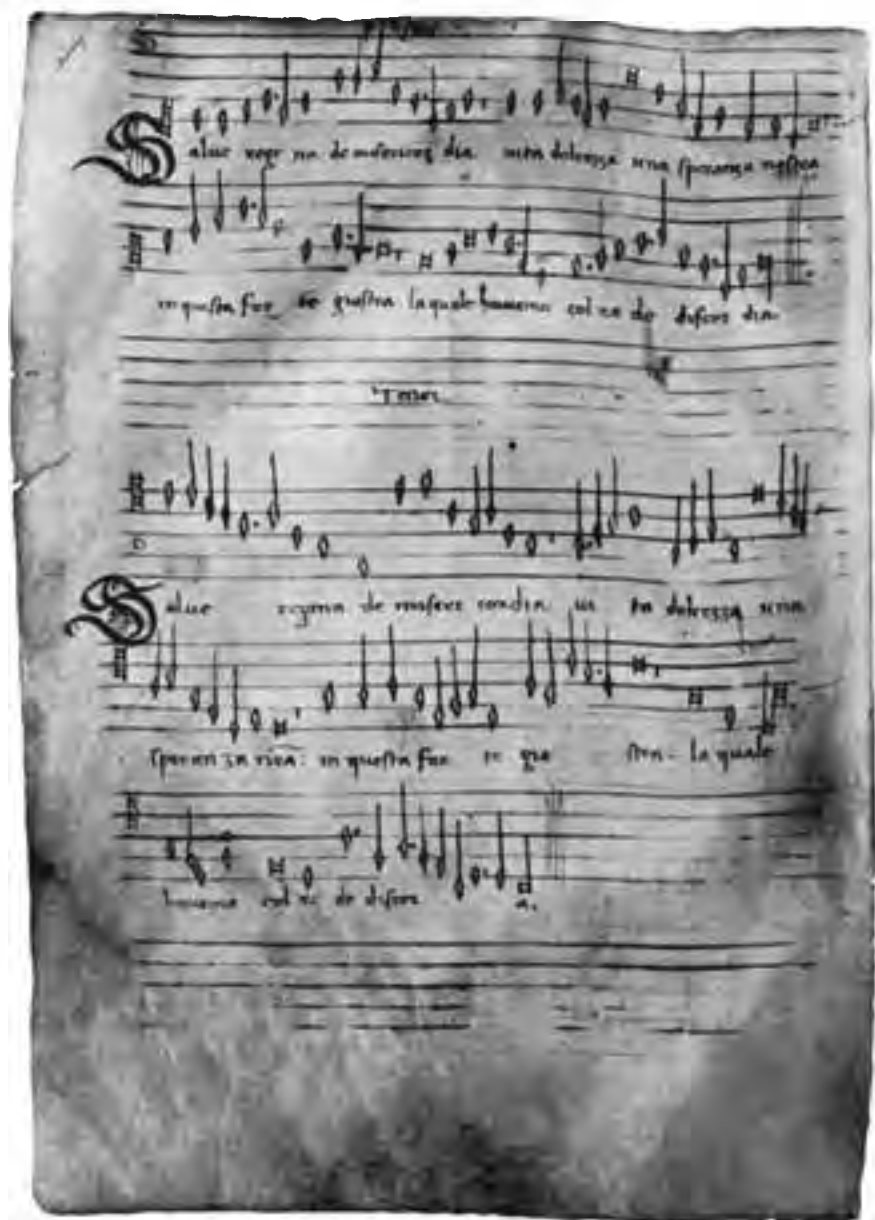 Salue rege na de misericor dia uita dolcezza uera speranza nostra
in questa for te giostra la quale hauemo col re de discor dia.
Tenor
Salue regina de miseri cordia ui ta dolcezza uera
speran za in questa for te gio stra. la quale
hauemo col re de discor a.